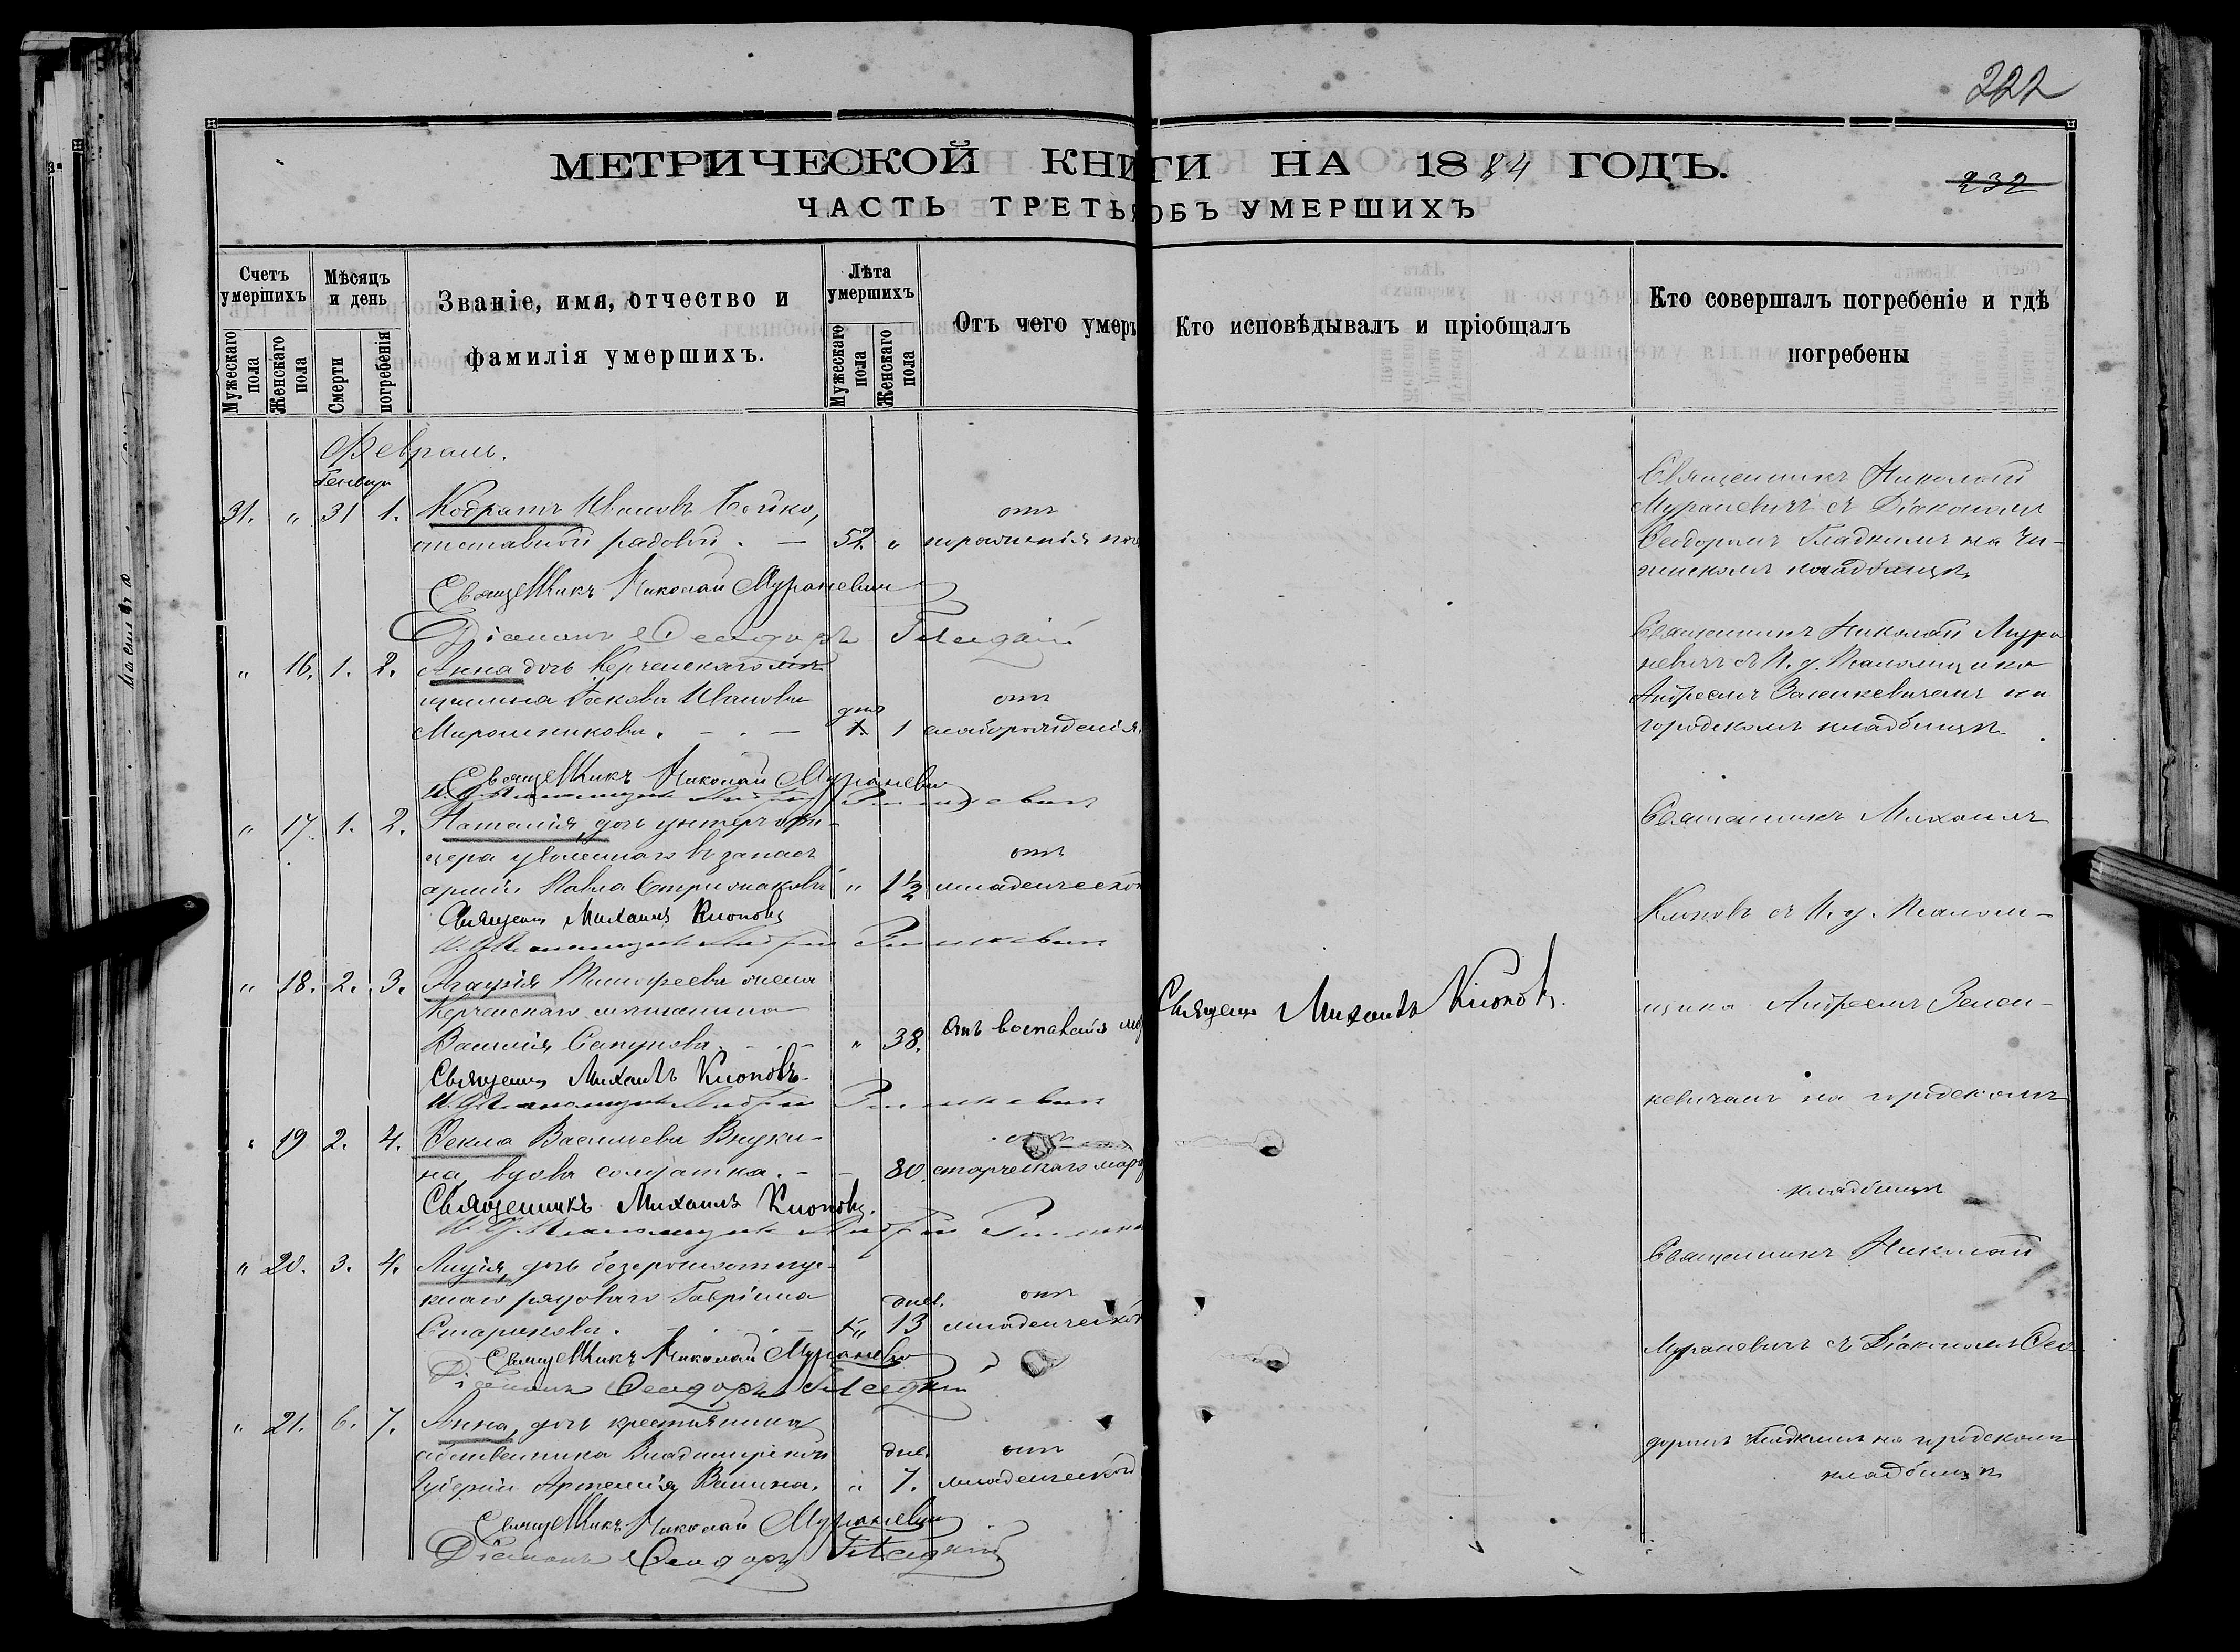 222
МЕТРИЧЕСКОЙ КНИГИ НА 1884 ГОДЪ.
232
ЧАСТЬ ТРЕТЬЯ ОБЪ УМЕРШИХЪ
Счетъ умершихъ
Мужескаго пола
Женскаго пола
Мѣсяцъ и день
Смерти
погребенія
Званіе, имя, отчество и
фамилія умершихъ.
Лѣта умершихъ
Мужескаго пола
Женскаго пола
Отъ чего умеръ
Кто исповѣдывалъ и пріобщалъ
Кто совершалъ погребеніе и гдѣ
погребены
Февраль.
Генваря
31. " 31 1. Кодратъ Ивановъ Бойко, отъ
отставной рядовой. — 52. "
Священникъ Николай Мураневич
Діаконъ Феодоръ Гладкій
Священникъ Николай
Мураневичъ съ Діакономъ
Феодоромъ Гладкимъ на
кладбищѣ
" 16. 1. 2. Анна дочь Керченскаго мѣ-
щанина Іакова Иванова дня отъ
Мирошникова. — 1 слаборожденія
Священникъ Николай Мураневич
И. д. Псаломщика Андрей
Священникъ Николай Мура
невичъ съ И. д. Псаломщика
Андреемъ на
городскомъ кладбищѣ.
" 17. 1. 2. Наталія, дочь унтеръ офи-
цера уволеннаго въ запасъ отъ
арміи Павла " 1½ младенческой
Священ Михаилъ Клоповъ
И. д. Псаломщика Андрей
Священникъ Михаилъ
Клоповъ съ И. д. Псалом-
" 18. 2. 3. Агафія Тимофеева жена
Керченскаго мѣщанина
Василія Сапунова. — " 38. Отъ воспаленія
Священ Михаилъ Клоповъ.
И. д. Псаломщика Андрей
Священ Михаилъ Клоповъ.
щика Андреемъ
кевичемъ на городскомъ
кладбищѣ
" 19 2. 4. Фекла Васильева Внуки- отъ
на, вдова солдатка. — 80. старческаго
Священникъ Михаилъ Клоповъ.
И. д. Псаломщика Андрей
" 20. 3. 4. Лидія, дочь безсрочноотпус-
кнаго рядоваго Гавріила дней. отъ
Старикова. " 13 младенческой
Священникъ Николай Мураневич
Діаконъ Феодоръ Гладкій
Священникъ Николай
Мураневичъ съ Діакономъ Фео-
" 21. 6. 7. Анна, дочь крестьянина
собственника Владимірской дней. отъ
Губерніи Артемія Ванина. " 7. младенческой
Священникъ Николай Мураневич
Діаконъ Феодоръ Гладкій
доромъ Гладкимъ на городскомъ
кладбищѣ